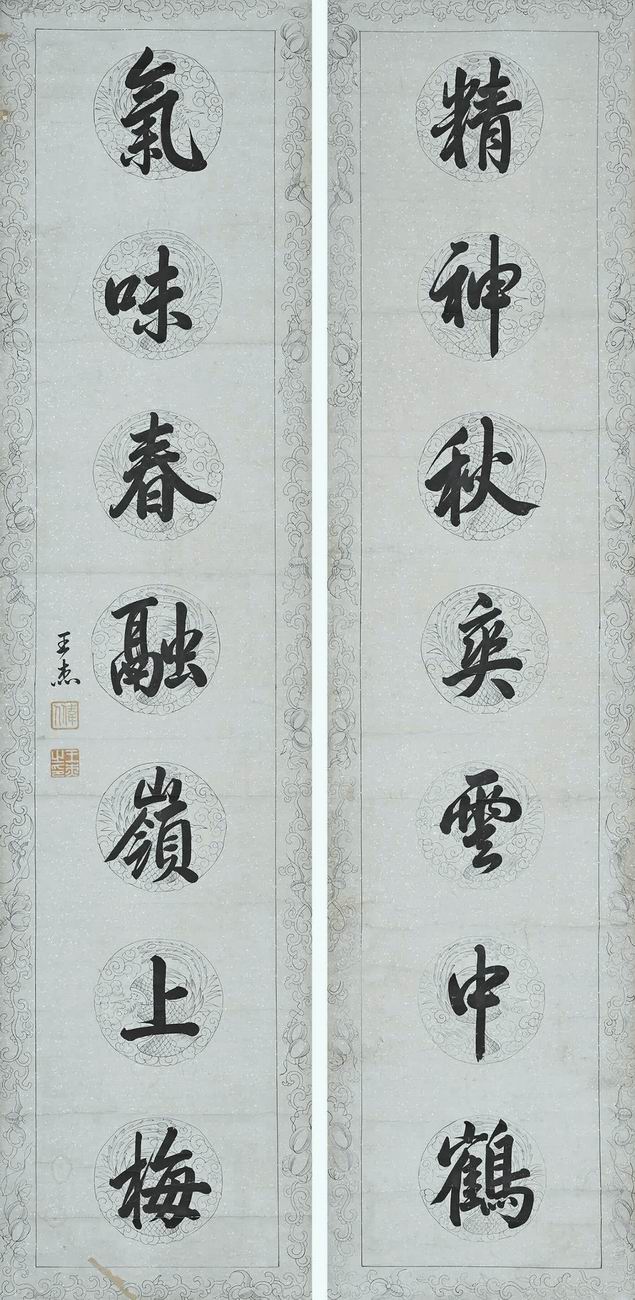 精神秋爽雲中鶴
氣味春融嶺上梅
王杰